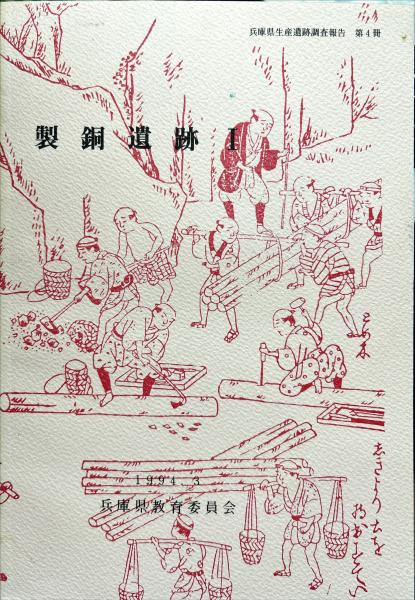 兵庫県生産遺跡調査報告 第4冊
製銅遺跡 I
1994.3
兵庫県教育委員会